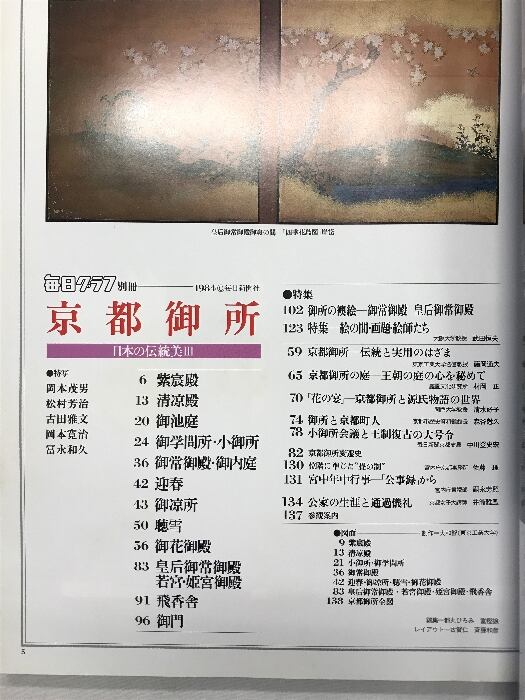 毎日グラフ別冊
1984©毎日新聞社
京都御所
日本の伝統美III
●特写
岡本茂男
松村芳治
古田雅文
岡本寛治
冨永和久
6 紫宸殿
13 清涼殿
20 御池庭
24 御学問所・小御所
36 御常御殿・御内庭
42 迎春
43 御涼所
50 聴雪
56 御花御殿
83 皇后御常御殿
若宮・姫宮御殿
91 飛香舎
96 御門
●特集
102 御所の襖絵―御常御殿 皇后御常御殿
123 特集 絵の間・画題・絵師たち
大阪大学教授 武田恒夫
59 京都御所 伝統と実用のはざま
65 京都御所の庭―王朝の庭の心を秘めて
70 「花の宴」―京都御所と源氏物語の世界
74 御所と京都町人
78 小御所会議と王制復古の大号令
82 京都御所変遷史
130
131 宮中年中行事―「公事録」から
134 公家の生涯と通過儀礼
137 参観案内
●図面
9 紫宸殿
13 清涼殿
21 小御所・御学問所
36 御常御殿
42 迎春・御涼所・聴雪・御花御殿
83 皇后御常御殿・若宮御殿・姫宮御殿・飛香舎
138 京都御所全図
5